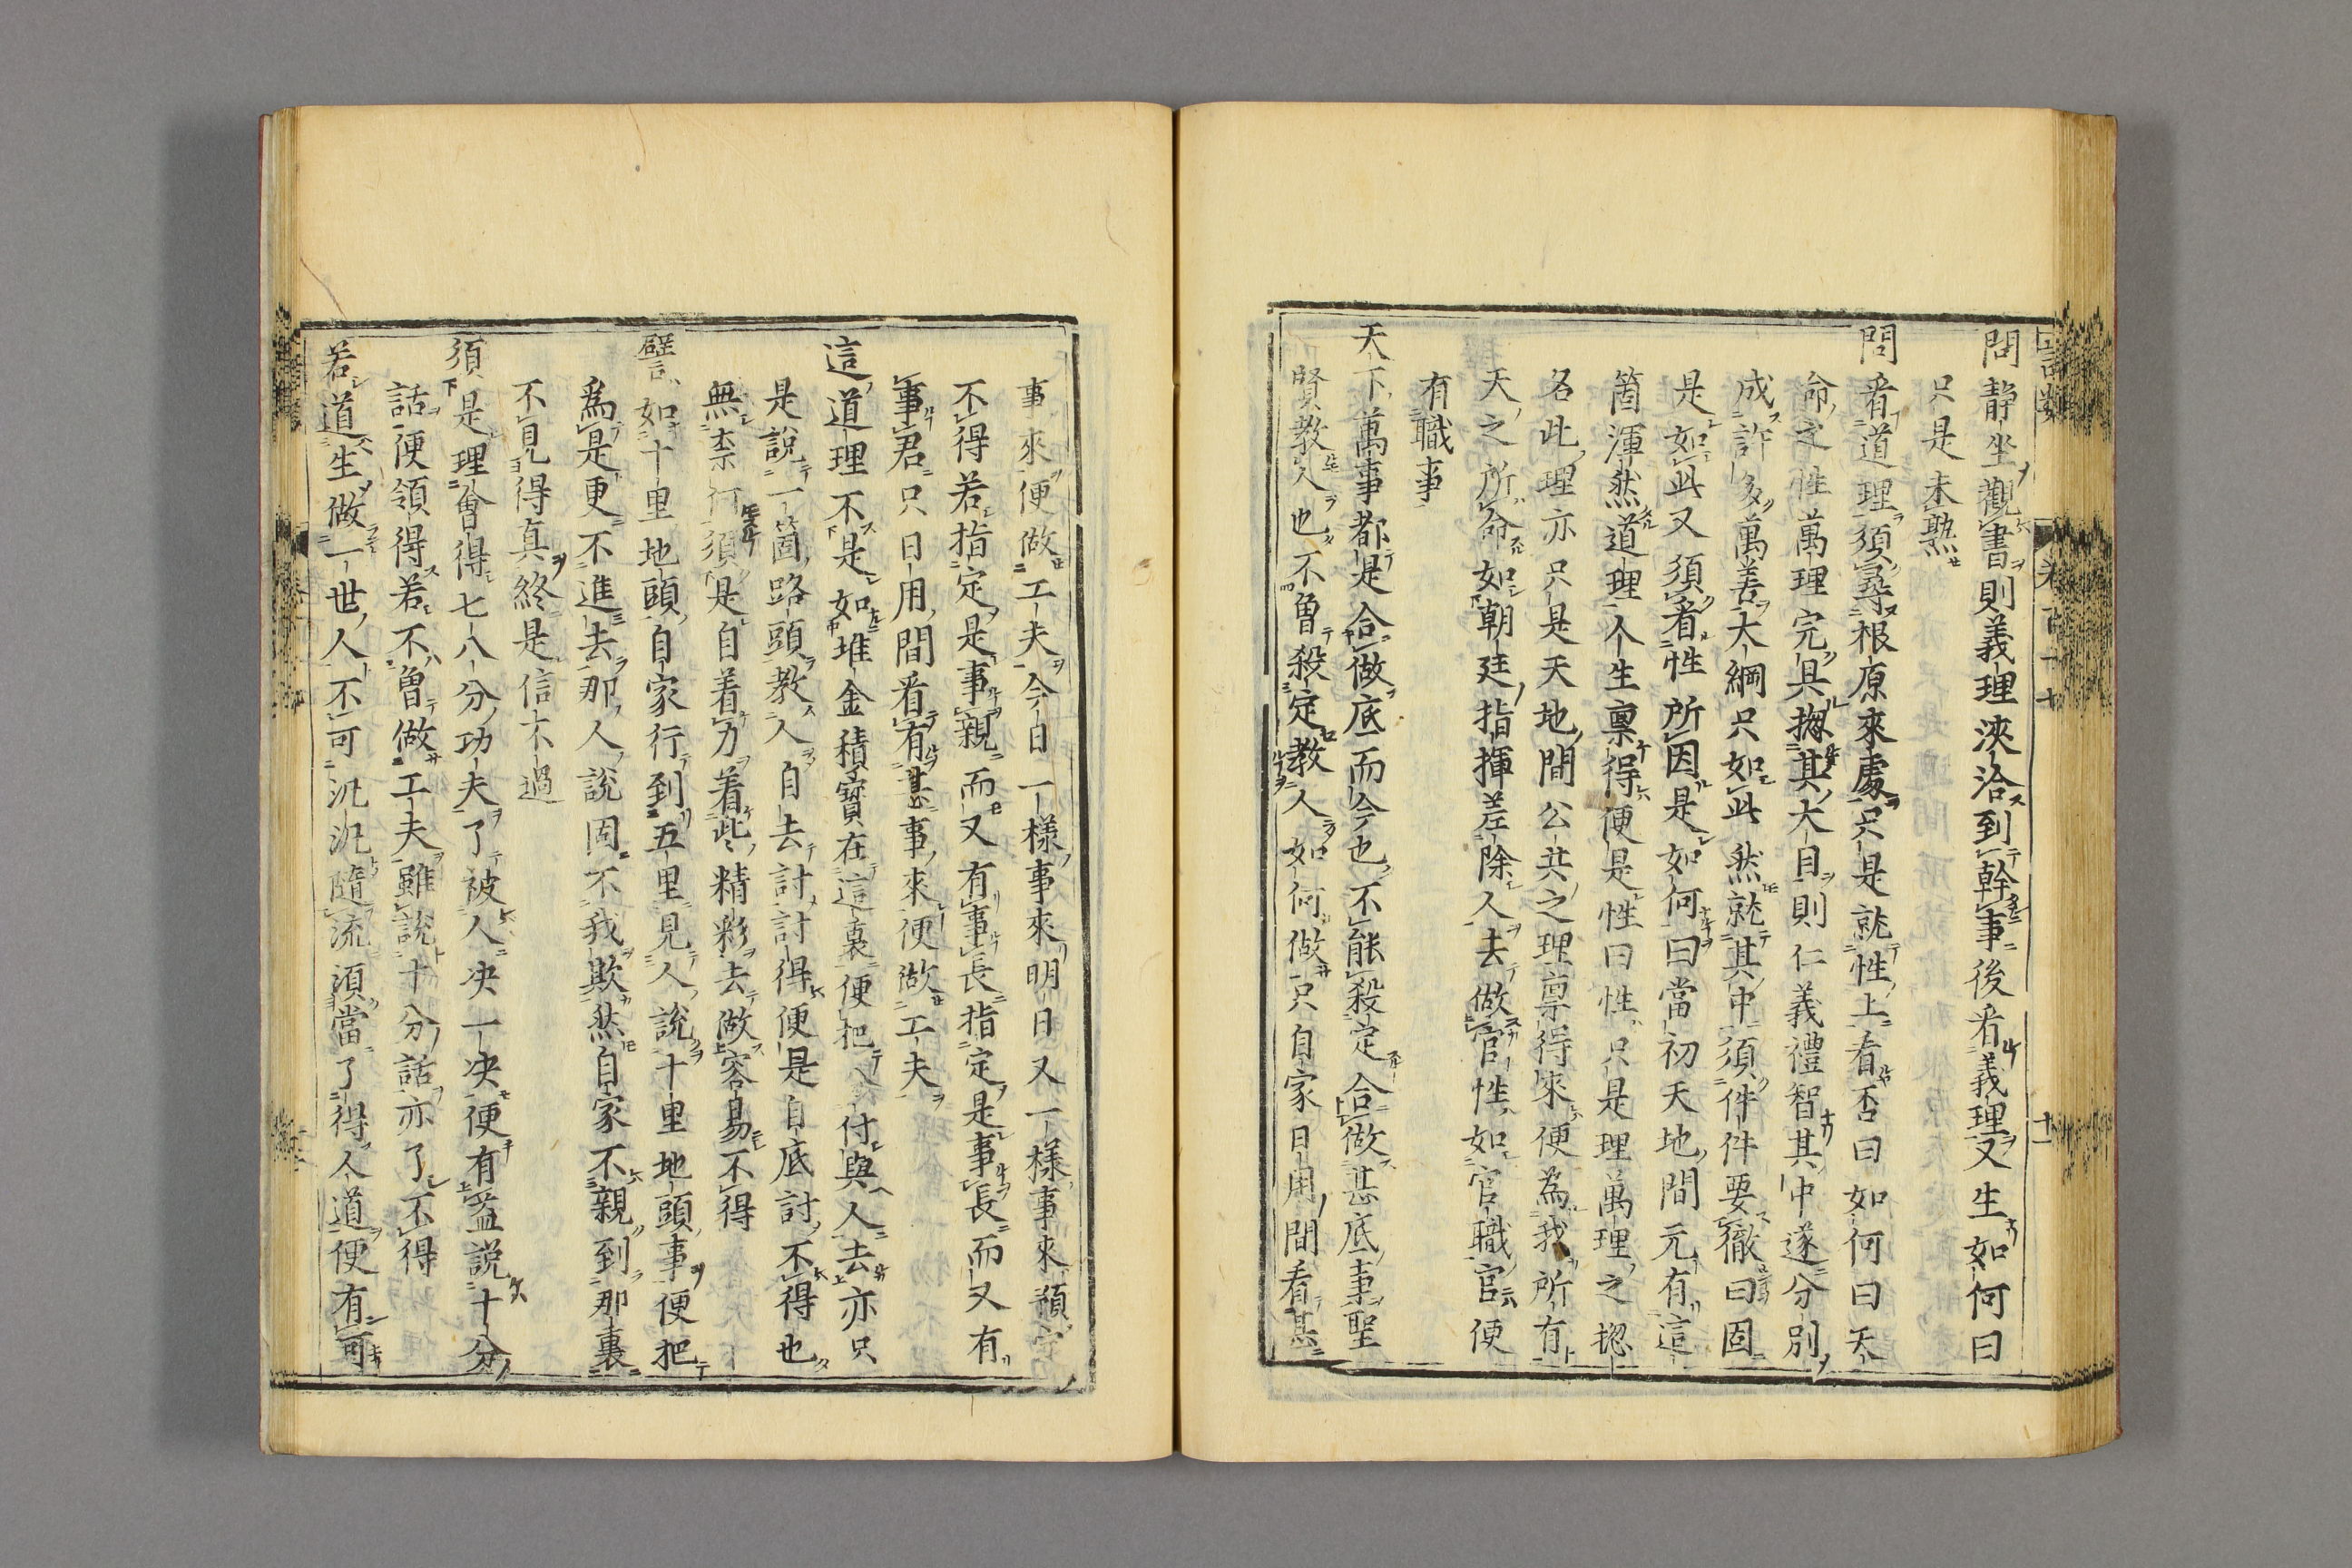 問靜坐觀書則義理浹洽到幹事後看義理又生如何曰
只是未熟
問看道理須尋根原來處只是就性上看否曰如何曰天
命之性萬理完具捴其大目則仁義禮智其中遂分別
成許多萬善大綱只如此然就其中須件件要徹曰固
是如此又須看性所因是如何曰當初天地間元有這
箇渾然道理人生禀得便是性曰性只是理萬理之捴
名此理亦只是天地間公共之理禀得來便為我所有
天之所命如朝廷指揮差除人去做官性如官職官便
有職事
天下萬事都是合做底而今也不能殺定合做甚底事聖
賢教人也不曾殺定教人如何做只自家日用間看甚
事來便做工夫今日一樣事來明日又一樣事來預定
不得若指定是事親而又有事長指定是事長而又有
事君只日用間看有甚事來便做工夫
這道理不是如堆金積寶在這裏便把付與人去亦只
是說一箇路頭教人自去討討得便是自底討不得也
無柰何須是自着力着此精彩去做容易不得
譬如十里地頭自家行到五里見人說十里地頭事便把
為是更不進去那人說固不我欺然自家不親到那裏
不見得真終是信不過
須是理會得七八分功夫了被人决一决便有益說十分
話便領得若不曾做工夫雖說十分話亦了不得
若道生做一世人不可汎汎隨流須當了得人道便有可
語類
十一